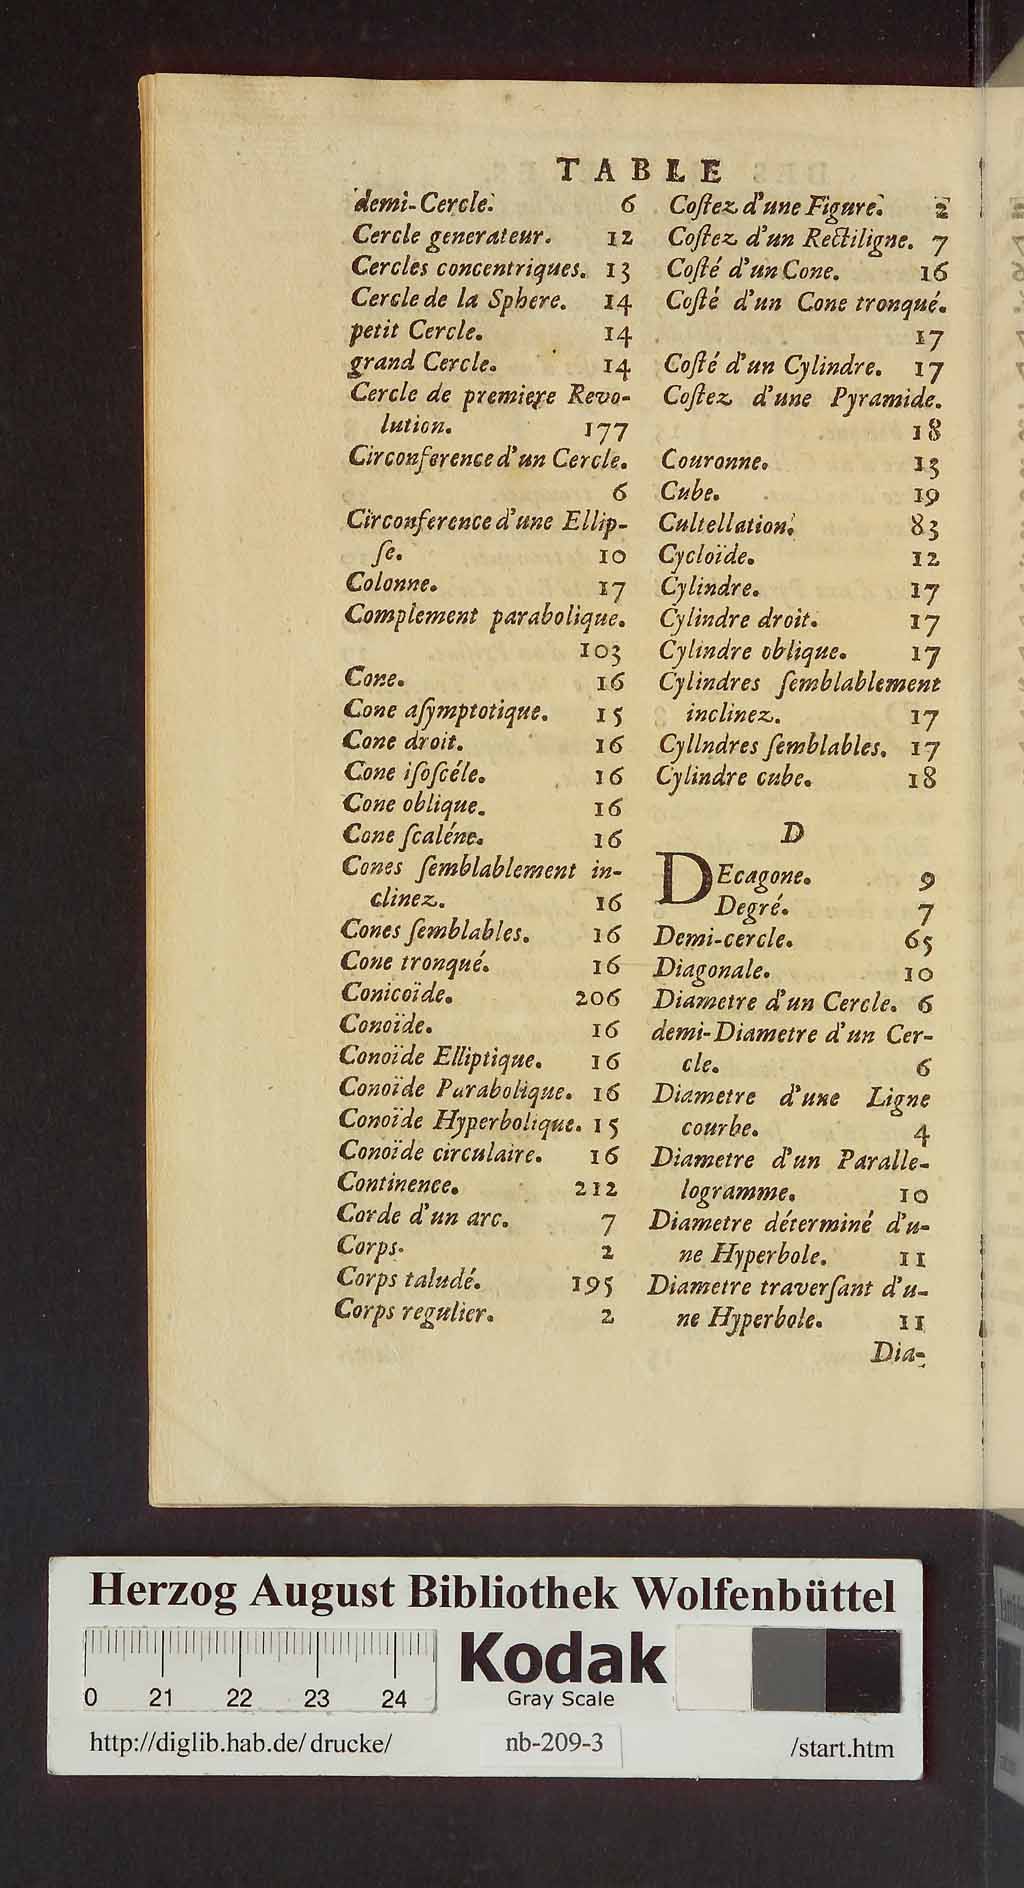 TABLE
demi-Cercle. 6
Cercle generateur. 12
Cercles concentriques. 13
Cercle de la Sphere. 14
petit Cercle. 14
grand Cercle. 14
Cercle de premiere Revo-
lution. 177
Circonference d'un Cercle.
6
Circonference d'une Ellip-
ſe. 10
Colonne. 17
Complement parabolique.
103
Cone. 16
Cone aſymptotique. 15
Cone droit. 16
Cone iſoſcéle. 16
Cone oblique. 16
Cone ſcaléne. 16
Cones ſemblablement in-
clinez. 16
Cones ſemblables. 16
Cone tronqué. 16
Conicoïde. 206
Conoïde. 16
Conoïde Elliptique. 16
Conoïde Parabolique. 16
Conoïde Hyperbolique. 15
Conoïde circulaire. 16
Continence. 212
Corde d'un arc. 7
Corps. 2
Corps taludé. 195
Corps regulier. 2
Coſtez d'une Figure. 2
Coſtez d'un Rectiligne. 7
Coſté d'un Cone. 16
Coſté d'un Cone tronqué.
17
Coſté d'un Cylindre. 17
Coſtez d'une Pyramide.
18
Couronne. 13
Cube. 19
Cultellation. 83
Cycloïde. 12
Cylindre. 17
Cylindre droit. 17
Cylindre oblique. 17
Cylindres ſemblablement
inclinez. 17
Cyllndres ſemblables. 17
Cylindre cube. 18
D
DEcagone. 9
Degré. 7
Demi-cercle. 65
Diagonale. 10
Diametre d'un Cercle. 6
demi-Diametre d'un Cer-
cle. 6
Diametre d'une Ligne
courbe. 4
Diametre d'un Paralle-
logramme. 10
Diametre déterminé d'u-
ne Hyperbole. 11
Diametre traverſant d'u-
ne Hyperbole. 11
Dia-
Herzog August Bibliothek Wolfenbüttel
0 21 22 23 24
Kodak
Gray Scale
http://diglib.hab.de/drucke/ nb-209-3 /start.htm